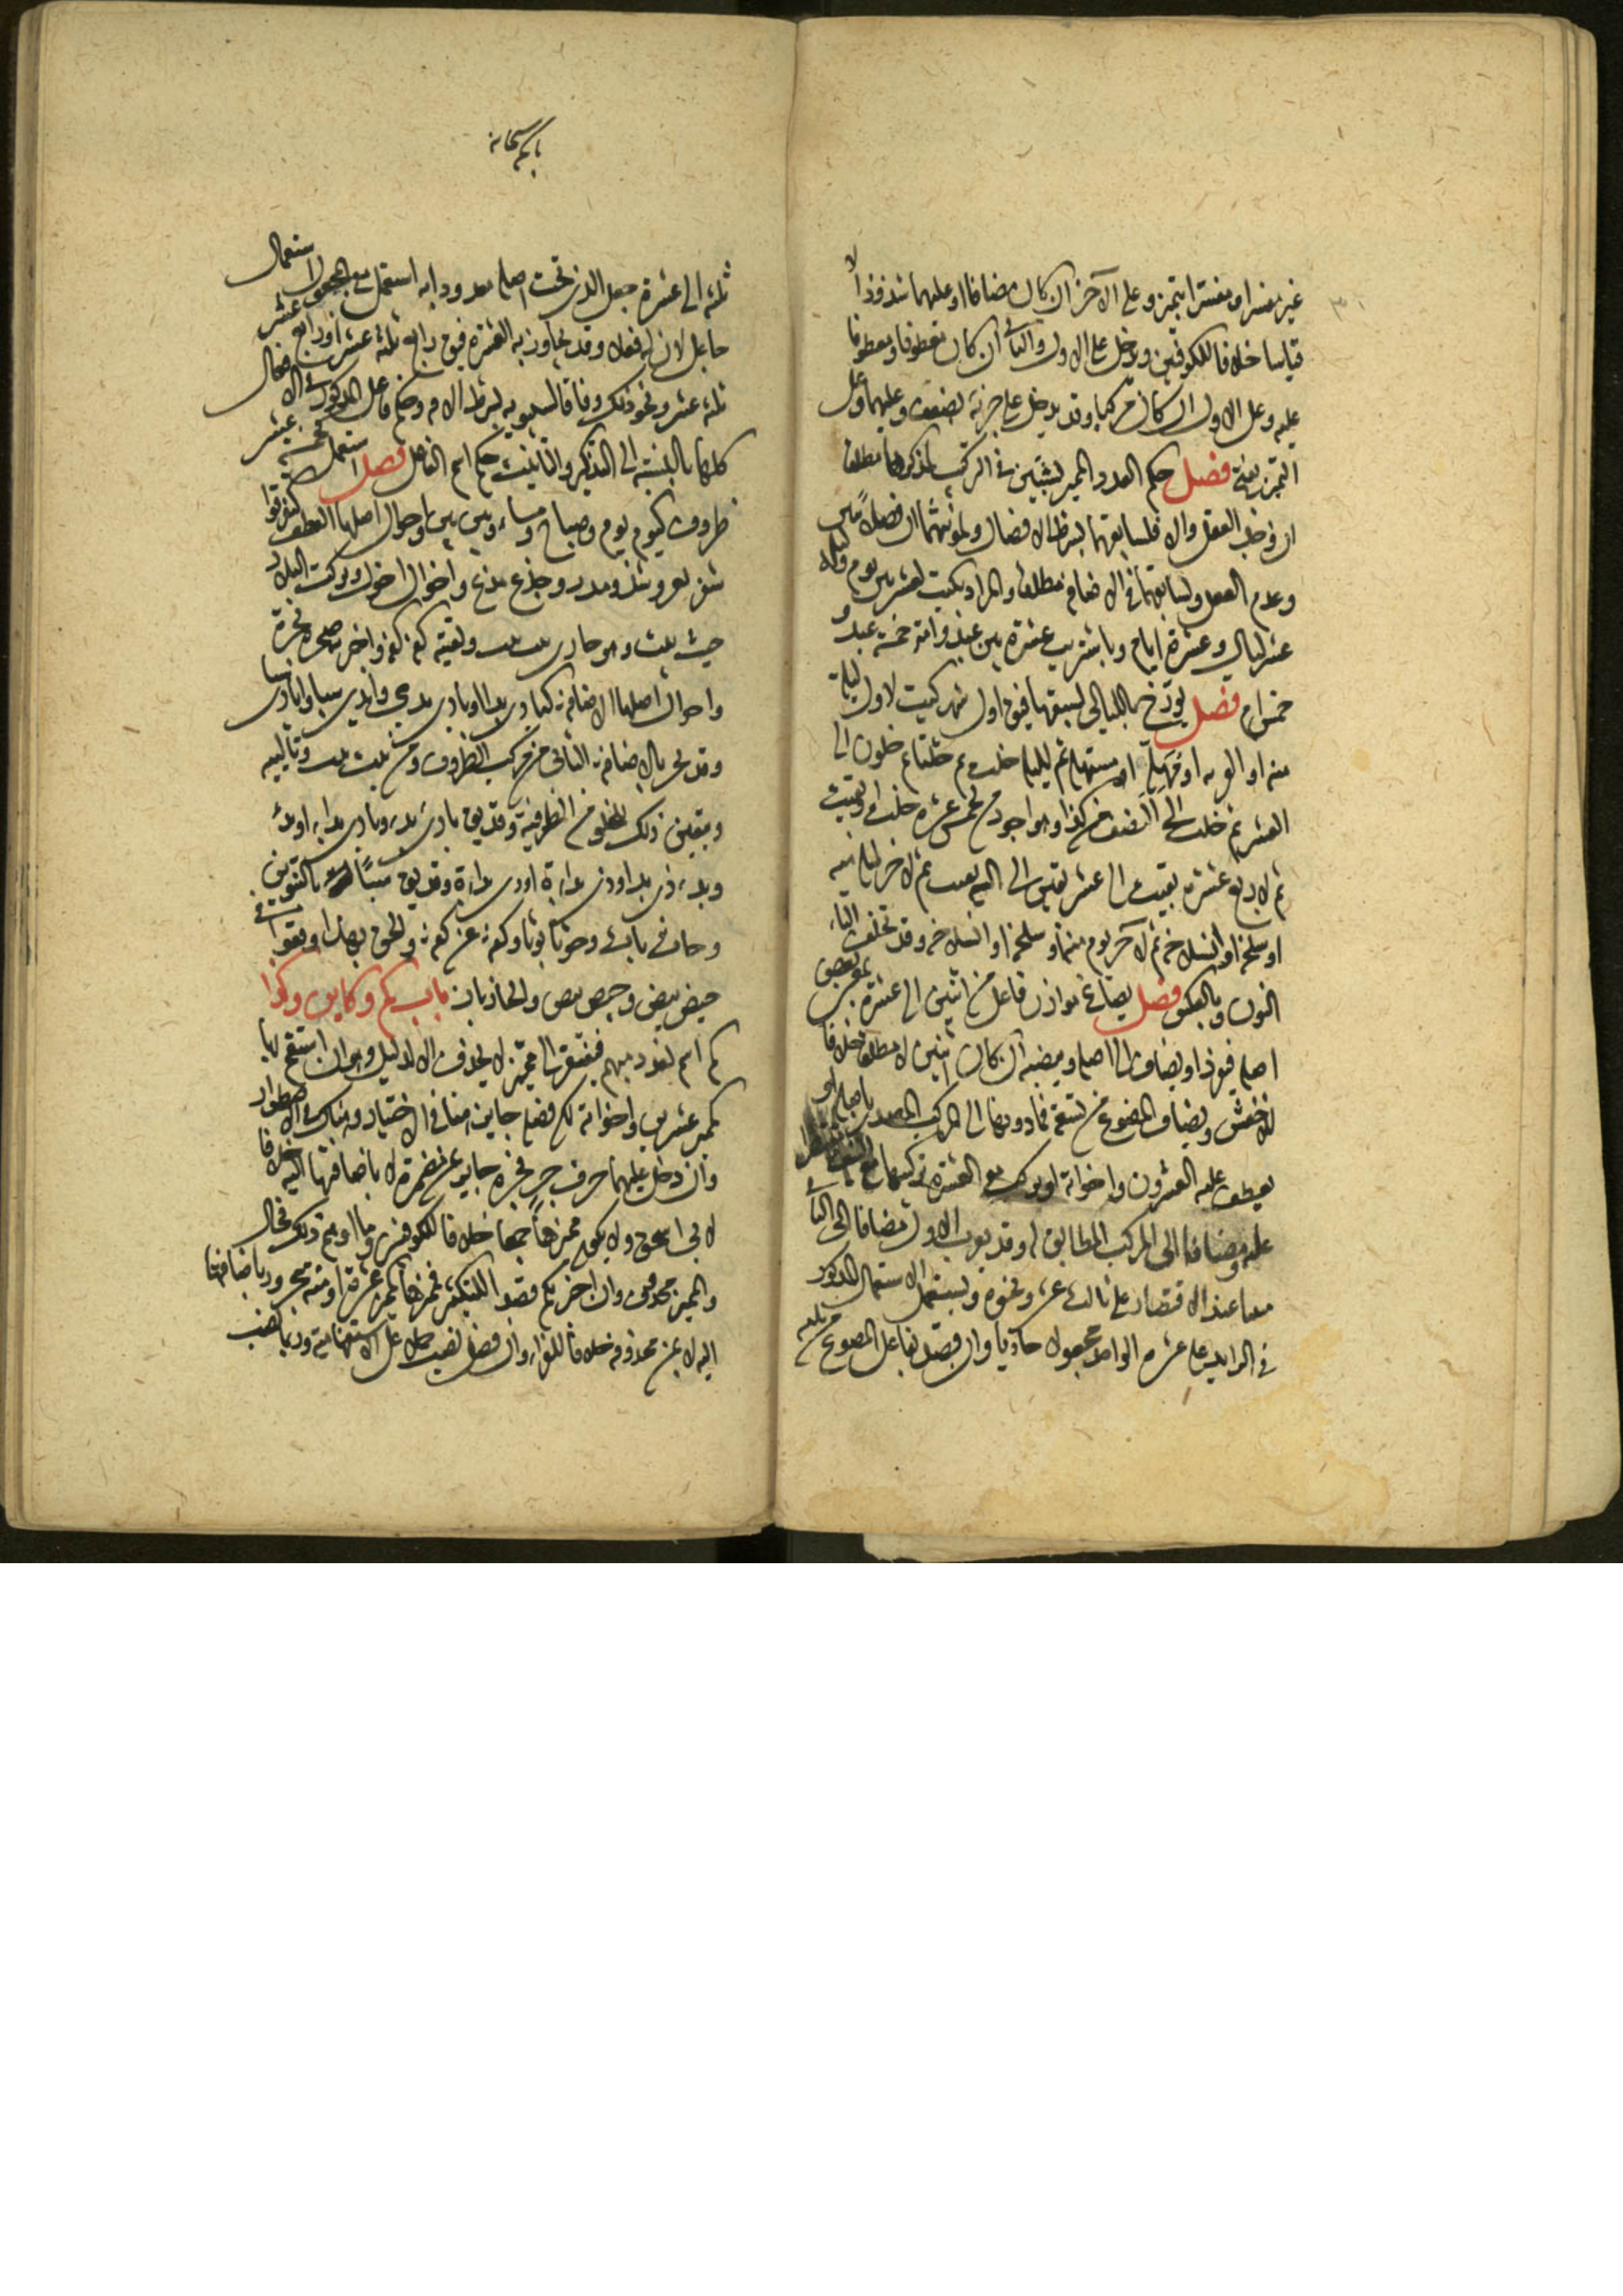 غير مفسر او مفسرا بتميز وعلى الآخر ان كان مضافا او عليهما شذوذا لا
قياسا خلافا للكوفيين ويدخل على الاول والثانى ان كان معطوفا ومعطوفا
عليه وعلى الاول ان كان مركبا وقد يدخل على جزئيه بضعف وعليهما وعلى
التميز بقبح فصل حكم العدد المميز بشيئين فى التركيب لمذكرهما مطلقا
ان وجد العقل والا فلسابقهما بشرط الاتصال ولمؤنثهما ان فصلا ببين
وعدم العقل ولسابقهما فى الاضافة مطلقا والمراد بكتبت لعشر بين يوم وليلة
عشر ليال وعشرة ايام وباشتريت عشرة بين عبد وامة خمسة اعبد و
خمس اماء فصل يورخ بالليالى لسبقها فيقال اول شهر كتبت لاول ليلة
منه او لغرته او مهله او مستهله ثم لليلة خلت ثم خلتا ثم خلون الى
العشر ثم خلت الى النصف من كذا وهو اجود من لخمس عشرة خلت او بقيت
ثم لاربع عشرة بقيت الى عشر بقين الى ليلة بقيت ثم لآخر ليلة منه
او سلخه او انسلاخه ثم لآخر يوم منه او سلخه او انسلاخه وقد تخلف التاء
النون وبالعكس فصل يصاغ موازن فاعل من اثنين الى عشرة بمعنى بعض
اصله فيفرد او يضاف الى اصله وينصبه ان كان اثنين لا مطلقا خلافا
للاخفش ويضاف المصوغ من تسعة فما دونها الى المركب المصدر باصله او
يعطف عليه العشرون واخواته او يركب مع العشرة تركيبها مع
عليه ومضافا الى المركب المطابق له وقد يعرب الاول مضافا الى الثانى
مبنيا عند الاقتصار على ثالث عشر ونحوه ويستعمل الاستعمال المذكور
فى الزايد على عشرة الواحد مجعولا حاديا وان قصد بفاعل المصوغ من ثلثة
ثلثة الى عشرة جعل الذى تحت اصله معدودا به استعمل مع المجعول استعمال
جاعل لان له فعلا وقد يجاوز به العشرة فيقال رابع ثلثة عشر او رابع عشر
ثلثة عشر ونحو ذلك وفاقا لسيبويه بشرط الاضافة وحكم فاعل المذكور فى الاحوال
كلها بالنسبة الى التذكير والتانيث حكم اسم الفاعل فصل استعمل كخمسة عشر
ظروف كيوم يوم وصباح مساء وبين بين واحوال اصلها العطف كتفرقوا
شغر بغر وشذر مذر وخذع مذع واخول اخول وتركت البلاد
حيث بيث وهو جارى بيت بيت ولقيته كفة كفة واخبرته صحرة بحرة
واحوال اصلها الاضافة كبادى بدا او بادى بدى وايدى سبا وايادى سبا
وقد يجر بالاضافة الثانى من مركب الظروف ومن بيت بيت وتالييه
ويتعين ذلك للخلو من الظرفية وقد يقال بادى بدء وبادى بداء او بدء
وبدء ذى بدء او ذى بداءة او ذى بداة وقد يقال سبا بالتنوين
وحاث باث وحوثا بوثا وكفة عن كفة والحق بهذا وقعوا فى
حيص بيص وحيص بيص والخازباز باب كم وكاين وكذا
كم اسم لعدد مبهم فيفتقر الى مميز لا يحذف الا لدليل وهو ان استفهم بها
كمميز عشرين واخواته لكن فصله جايز هنا فى الاختيار وهناك فى الاضطرار
وان دخل عليها حرف جر فجره جايز بمن مضمرة لا باضافتها اليه خلافا
لابى اسحق ولا يكون مميزها جمعا خلافا للكوفيين وما اوهم ذلك فحال
والمميز محذوف وان اخبر بكم قصد التكثير فمميزها كمميز عشرة او مئة مجرور باضافتها
اليه لا بمن محذوفة خلافا للفراء وان فصل نصب حملا على الاستفهامية وربما نصب